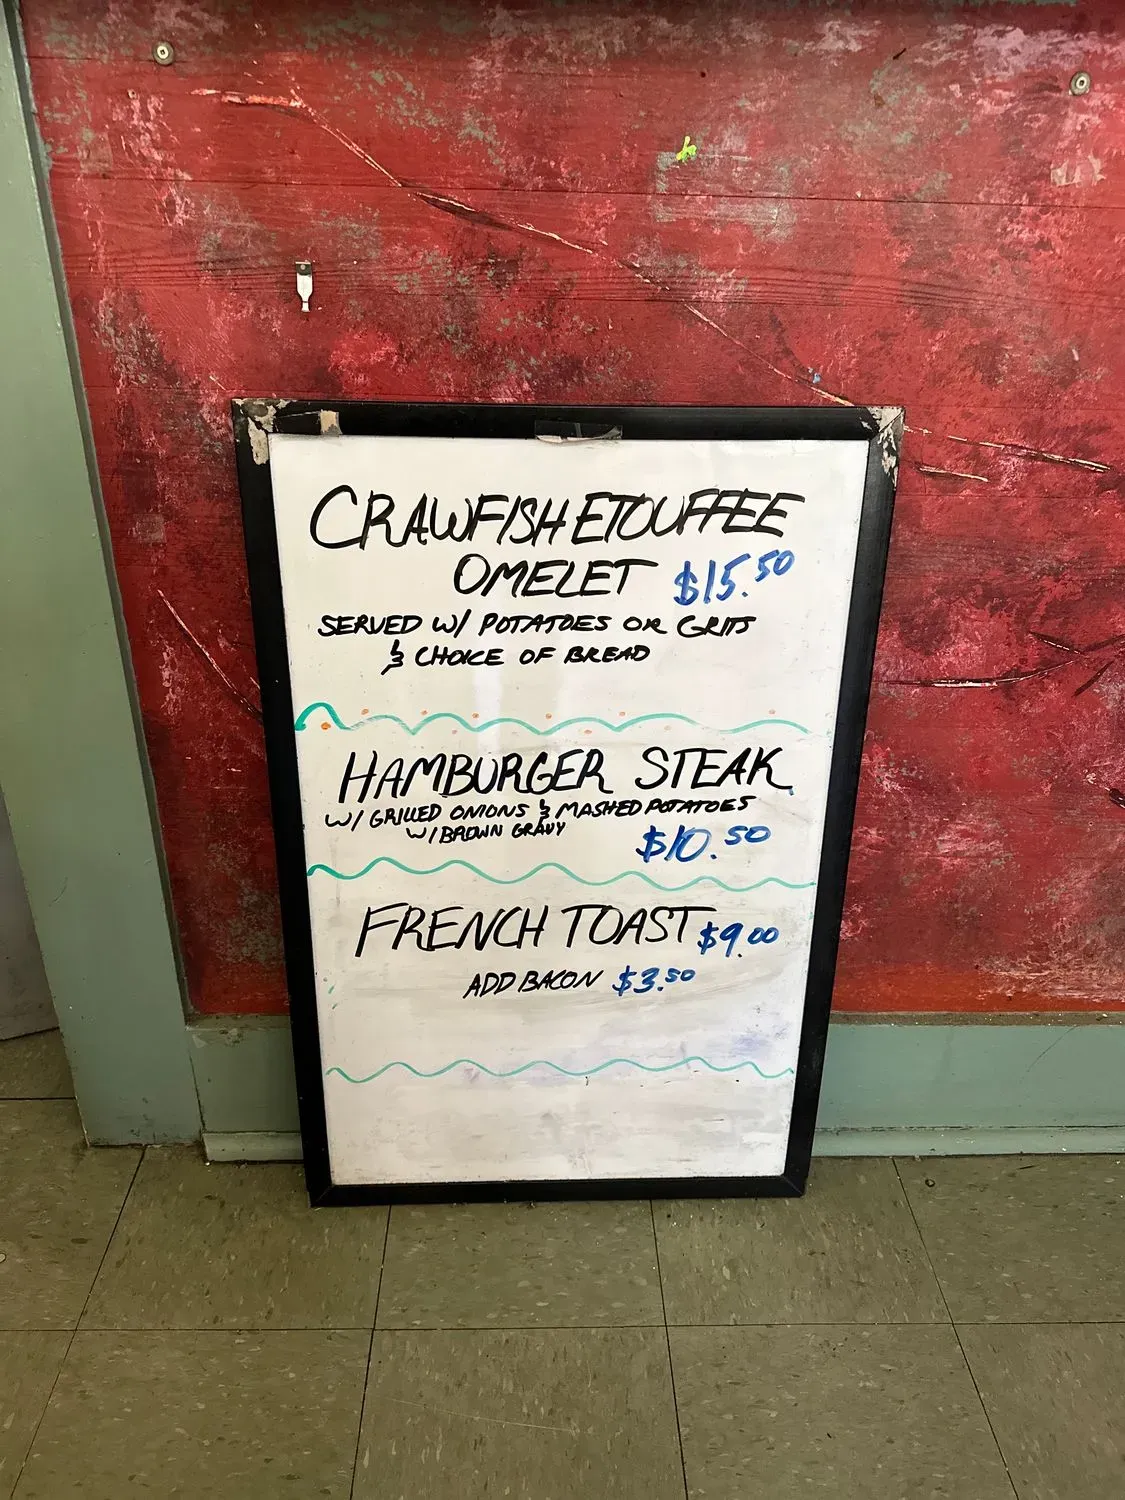 CRAWFISH ETOUFFEE
OMELET $15.50
SERVED W/ POTATOES OR GRITS
& CHOICE OF BREAD
HAMBURGER STEAK
W/ GRILLED ONIONS & MASHED POTATOES
W/ BROWN GRAVY
$10.50
FRENCH TOAST $9.00
ADD BACON $3.50